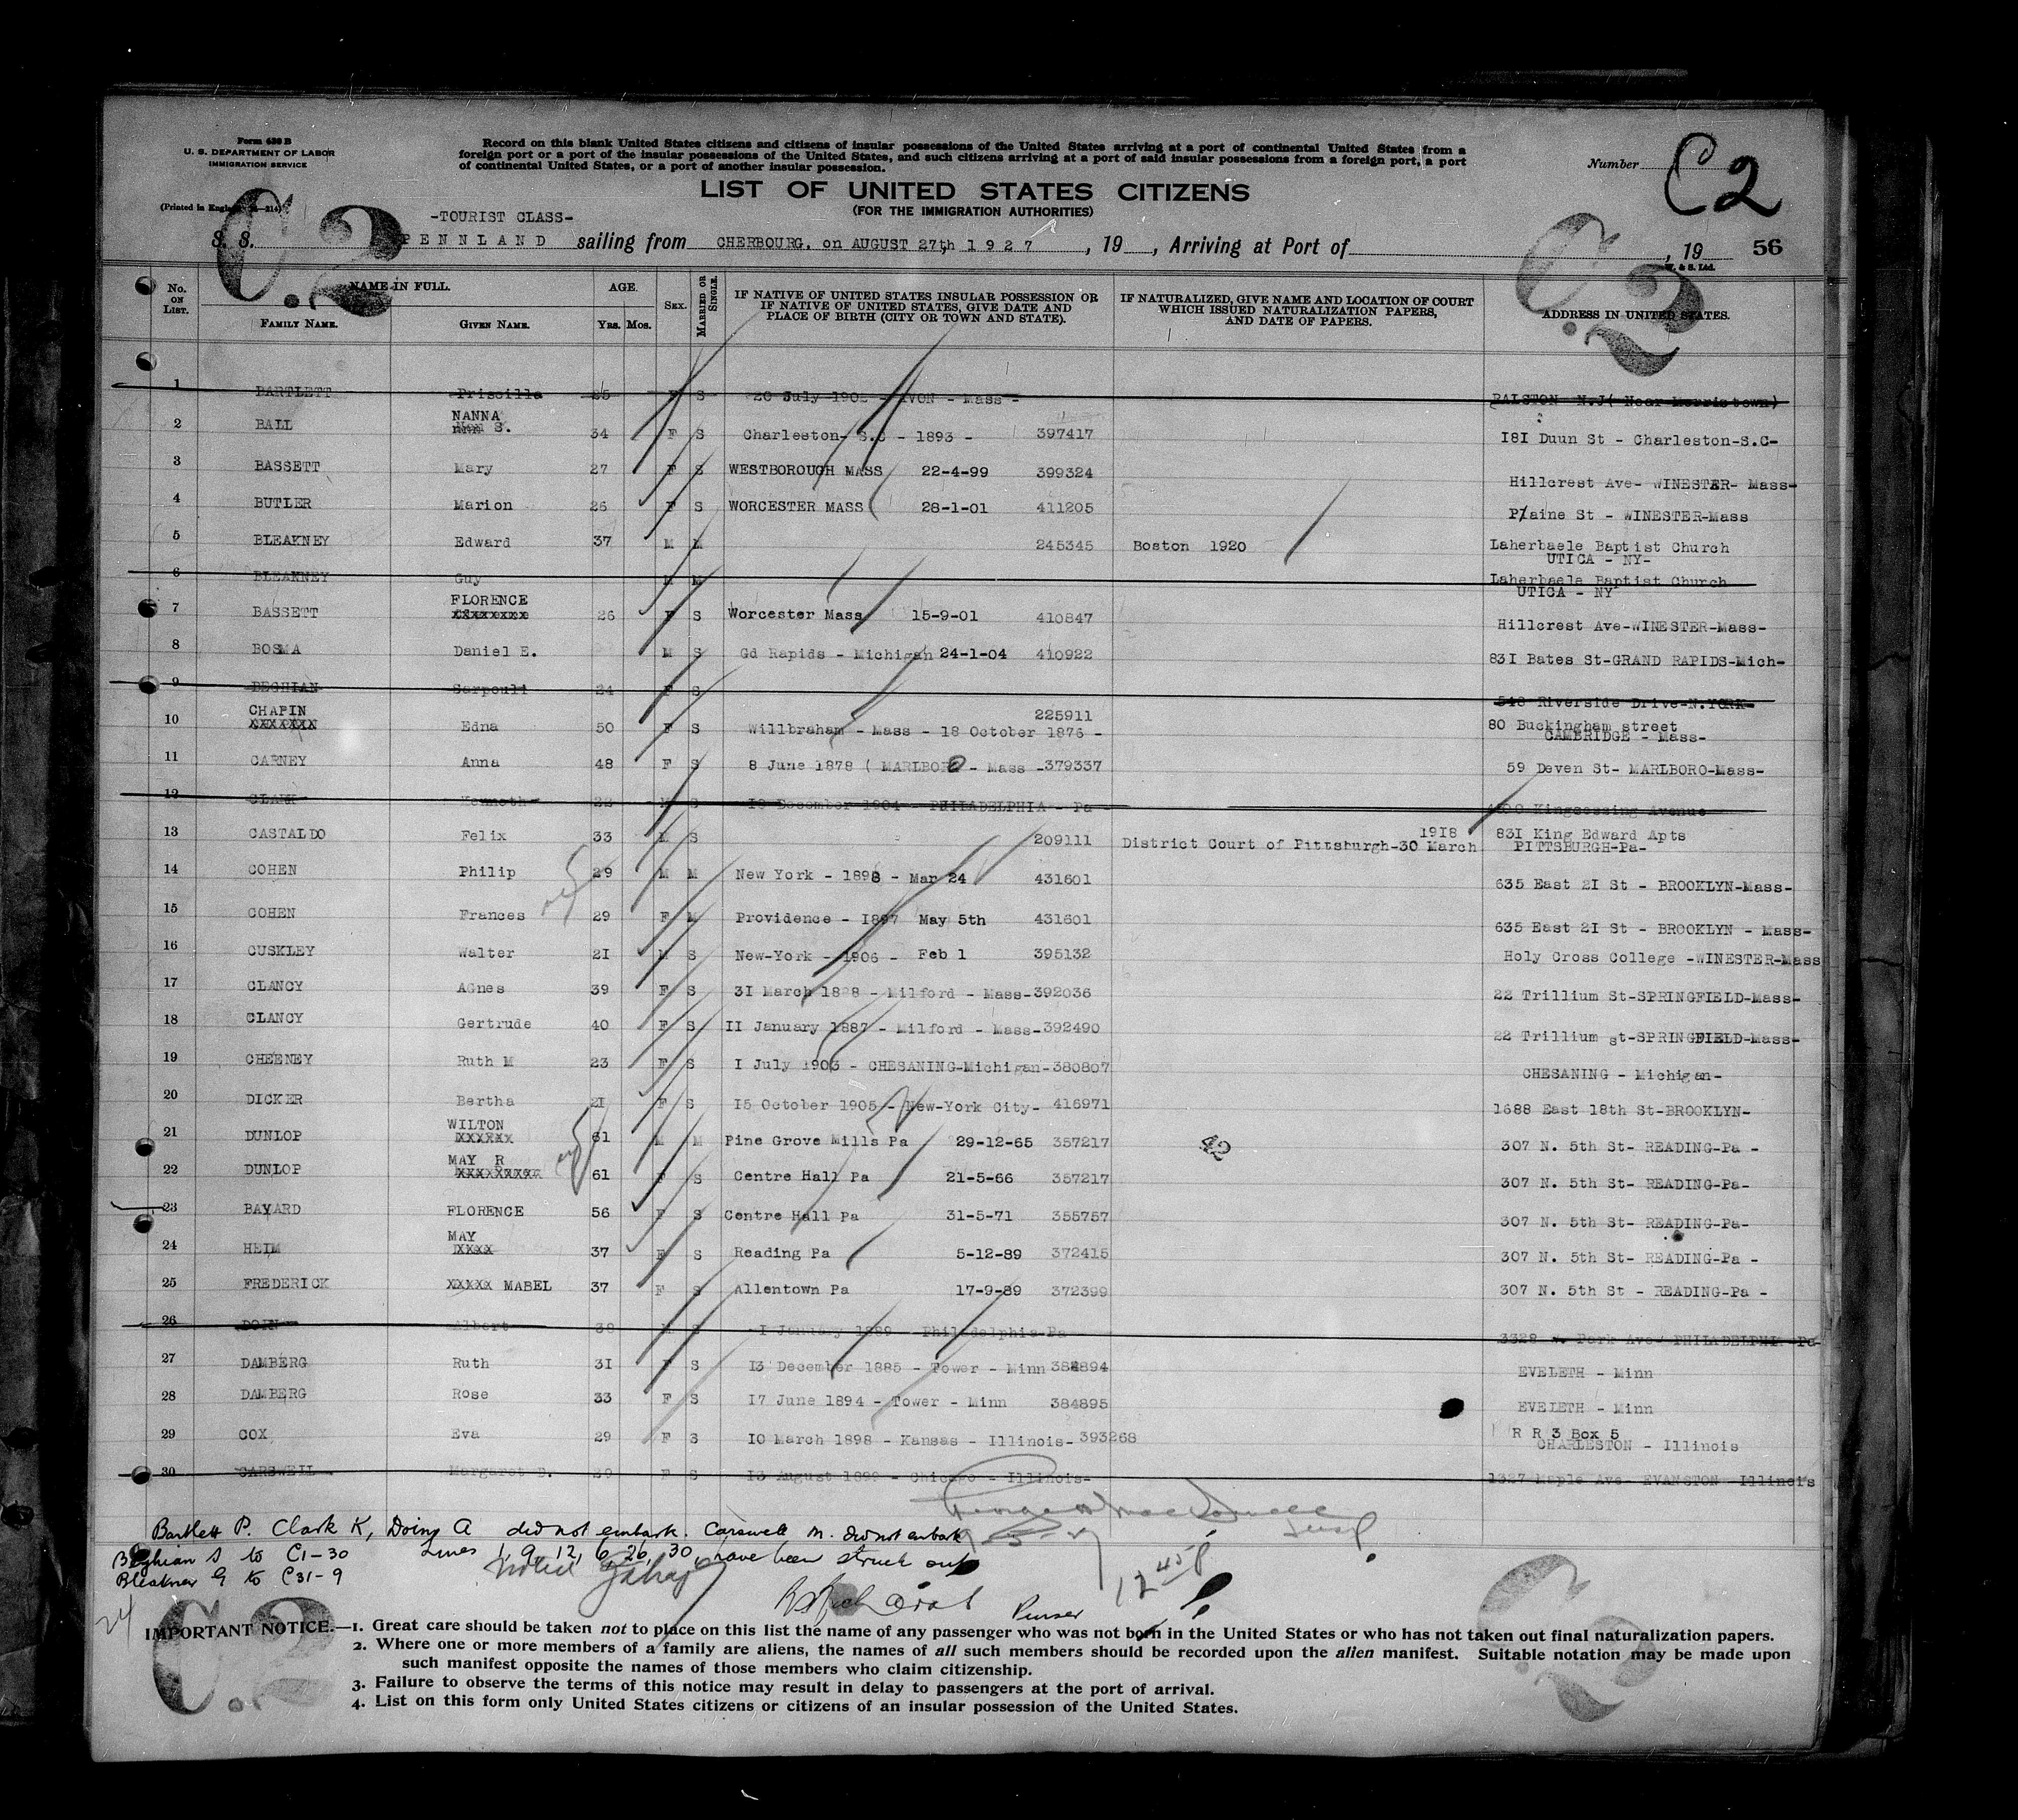 Form 630 B
U. S. DEPARTMENT OF LABOR
IMMIGRATION SERVICE
(Printed in England
Record on this blank United States citizens and citizens of insular possessions of the United States arriving at a port of continental United States from a
foreign port or a port of the insular possessions of the United States, and such citizens arriving at a port of said insular possessions from a foreign port, a port
of continental United States, or a port of another insular possession.
Number C 2
LIST OF UNITED STATES CITIZENS
(FOR THE IMMIGRATION AUTHORITIES)
C.2
C.2
-TOURIST CLASS-
S. S. PENNLAND sailing from CHERBOURG, on AUGUST 27th, 1 9 2 7, 19, Arriving at Port of , 19 56
W. & S. Ltd.
No. ON LIST. NAME IN FULL. FAMILY NAME. GIVEN NAME. AGE. YRS. MOS. SEX. MARRIED OR SINGLE. IF NATIVE OF UNITED STATES INSULAR POSSESSION OR IF NATIVE OF UNITED STATES, GIVE DATE AND PLACE OF BIRTH (CITY OR TOWN AND STATE). IF NATURALIZED, GIVE NAME AND LOCATION OF COURT WHICH ISSUED NATURALIZATION PAPERS, AND DATE OF PAPERS. ADDRESS IN UNITED STATES.
1 BARTLETT Priscilla 25 F S 20 July 1902 - AVON - Mass - RALSTON N.J( Near Morristown)
2 BALL NANNA S. 34 F S Charleston- S.C - 1893 - 397417 181 Duun St - Charleston-S.C-
3 BASSETT Mary 27 F S WESTBOROUGH MASS 22-4-99 399324 Hillcrest Ave- WINESTER- Mass-
4 BUTLER Marion 26 F S WORCESTER MASS 28-1-01 411205 Plaine St - WINESTER-Mass
5 BLEAKNEY Edward 37 M M 245345 Boston 1920 Laherbaele Baptist Church
UTICA - NY-
6 BLEAKNEY Guy M M Laherbaele Baptist Church
UTICA - NY
7 BASSETT FLORENCE 26 F S Worcester Mass 15-9-01 410847 Hillcrest Ave-WINESTER-Mass-
8 BOSMA Daniel E. M S Gd Rapids - Michigan 24-1-04 410922 831 Bates St-GRAND RAPIDS-Mich-
9 BEGHIAN Serpouli 24 F S 548 Riverside Drive-N.YORK-
10 CHAPIN XXXXXXX Edna 50 F S Willbraham - Mass - 18 October 1876 - 225911 80 Buckingham street
CAMBRIDGE - Mass-
11 CARNEY Anna 48 F S 8 June 1878 ( MARLBORO - Mass -379337 59 Deven St- MARLBORO-Mass-
12 CLARK 22 M S 18 December 1904 - PHILADELPHIA - Pa - Kingsessing Avenue
13 CASTALDO Felix 33 M S 209111 District Court of Pittsburgh-30 March 1918 831 King Edward Apts
PITTSBURGH-Pa-
14 COHEN Philip 29 M M New York - 1898 - Mar 24 431601 635 East 21 St - BROOKLYN-Mass-
15 COHEN Frances 29 F M Providence - 1897 May 5th 431601 635 East 21 St - BROOKLYN - Mass-
16 CUSKLEY Walter 21 M S New-York - 1906 - Feb 1 395132 Holy Cross College -WINESTER-Mass
17 CLANCY AGnes 39 F S 31 March 1888 - Milford - Mass-392036 22 Trillium St-SPRINGFIELD-Mass-
18 CLANCY Gertrude 40 F S 11 January 1887 - Milford - Mass-392490 22 Trillium st-SPRINGFIELD-Mass-
19 CHEENEY Ruth M 23 F S 1 July 1903 - CHESANING-Michigan-380807 CHESANING - Michigan-
20 DICKER Bertha 21 F S 15 October 1905 - New-York City- 416971 1688 East 18th St-BROOKLYN-
21 DUNLOP WILTON XXXXXX 61 M M Pine Grove Mills Pa 29-12-65 357217 307 N. 5th St- READING-Pa -
22 DUNLOP MAY R XXXXXXXXX 61 F S Centre Hall Pa 21-5-66 357217 307 N. 5th St- READING-Pa-
23 BAYARD FLORENCE 56 F S Centre Hall Pa 31-5-71 355757 307 N. 5th St- READING-Pa-
24 HEIM MAY XXXX 37 F S Reading Pa 5-12-89 372415 307 N. 5th St- READING-Pa -
25 FREDERICK XXXXX MABEL 37 F S Allentown Pa 17-9-89 372399 307 N. 5th St - READING-Pa -
26 Albert 38 M S 1 January 1889 - Philadelphia-Pa 3328 Park Ave- PHILADELPHI -Pa-
27 DAMBERG Ruth 31 F S 13 December 1885 - Tower - Minn 384894 EVELETH - Minn
28 DAMBERG Rose 33 F S 17 June 1894 - Tower - Minn 384895 EVELETH - Minn
29 COX Eva 29 F S 10 March 1898 - Kansas - Illinois- 393268 R R 3 Box 5
CHARLESTON - Illinois
30 CARSWELL Margaret D. 29 F S 13 August 1898 - Chicago - Illinois- 1327 Maple Ave- EVANSTON-Illinois
Bartlett P. Clark K, Doing A did not embark. Carswell M. did not embark
Beghian S to C1-30 Lines 1, 9, 12, 6, 26, 30, have been struck out
Bleakney G to C31-9 Noted
12 45 P
24 Purser
C.2
C.2
IMPORTANT NOTICE.—1. Great care should be taken not to place on this list the name of any passenger who was not born in the United States or who has not taken out final naturalization papers.
2. Where one or more members of a family are aliens, the names of all such members should be recorded upon the alien manifest. Suitable notation may be made upon
such manifest opposite the names of those members who claim citizenship.
3. Failure to observe the terms of this notice may result in delay to passengers at the port of arrival.
4. List on this form only United States citizens or citizens of an insular possession of the United States.